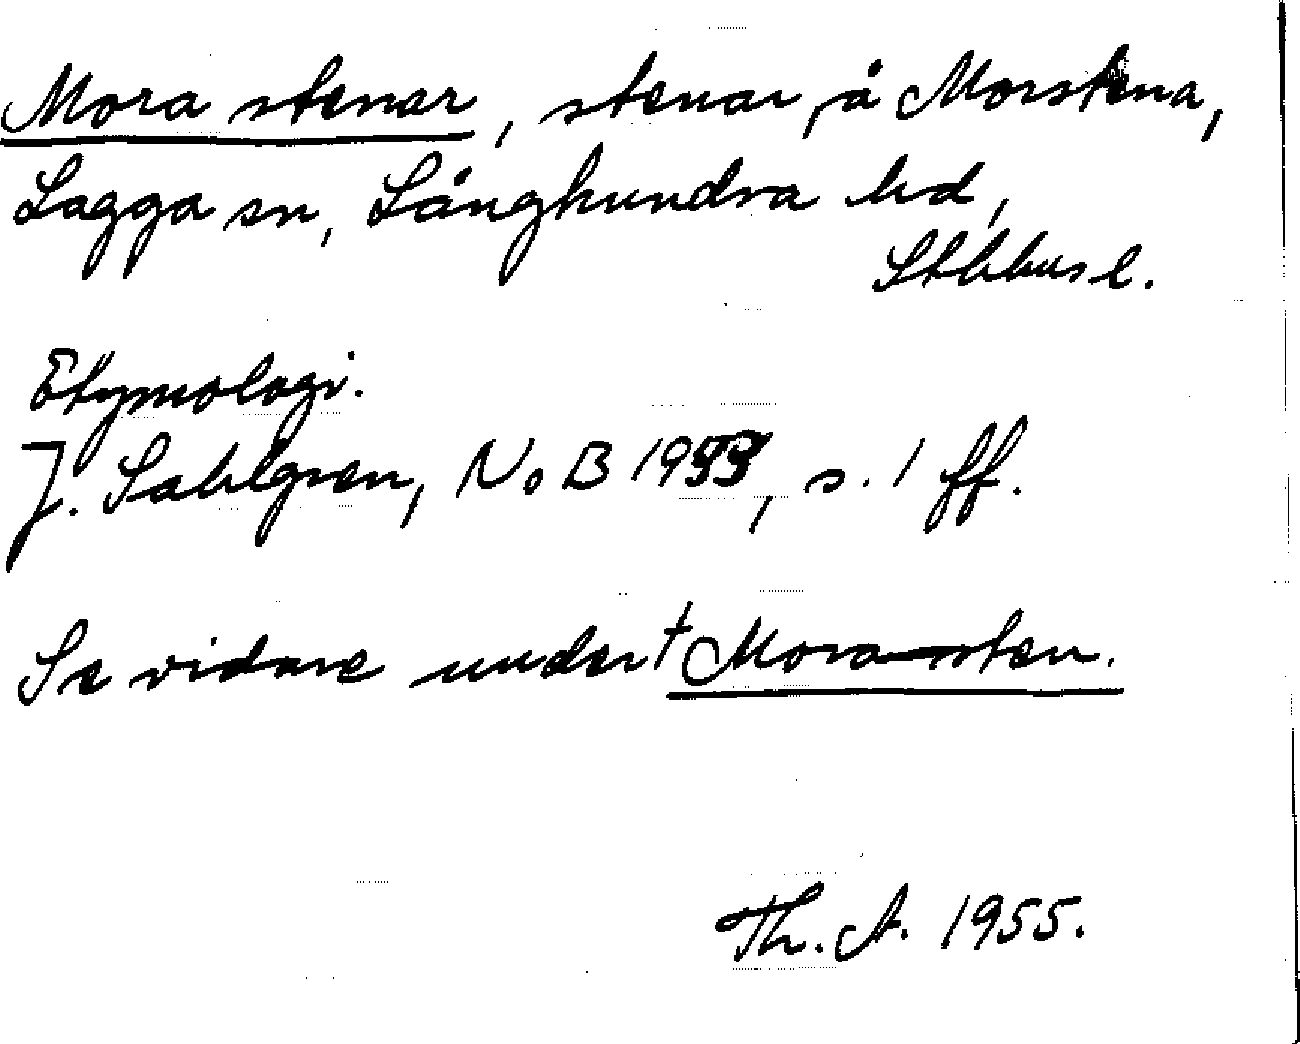 Mora stenar, stenar, å Morstena,
Lagga sn, Långhundra hd,
Sthlms l.
Etymologi.
J. Sahlgren, NoB 1953, s. 1 ff.
Se vidare under † Mora sten.
Th. A. 1955.